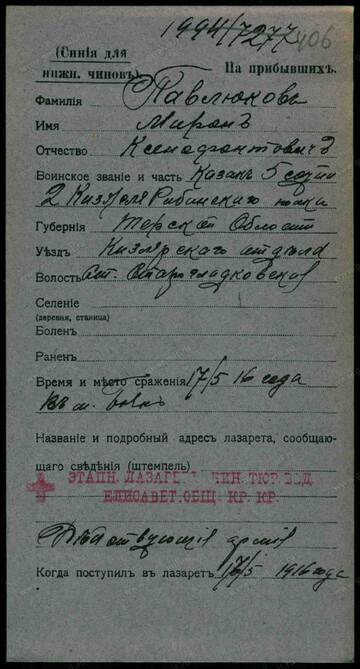 1994/7277 406
(Синія для
нижн. чиновъ).
На прибывшихъ.
Фамилія Павлюковъ
Имя Миронъ
Отчество Ксенофонтовичъ
Воинское званіе и часть Казакъ 5 сотни
2 Кизляро Гребенского полка
Губернія Терской Области
Уѣздъ Кизлярского отдѣла
Волость Ст. Старогладковской
Селеніе
(деревня, станица)
Боленъ
Раненъ
Время и мѣсто сраженія 17/5 16 года
Названіе и подробный адресъ лазарета, сообщаю-
щаго свѣдѣнія (штемпель)
ЭТАПН. ЛАЗАРЕТ
ЕЛИСАВЕТ. ОБЩ. КР. КР.
Дѣйствующая армія
Когда поступилъ въ лазаретъ 17/5 1916 года